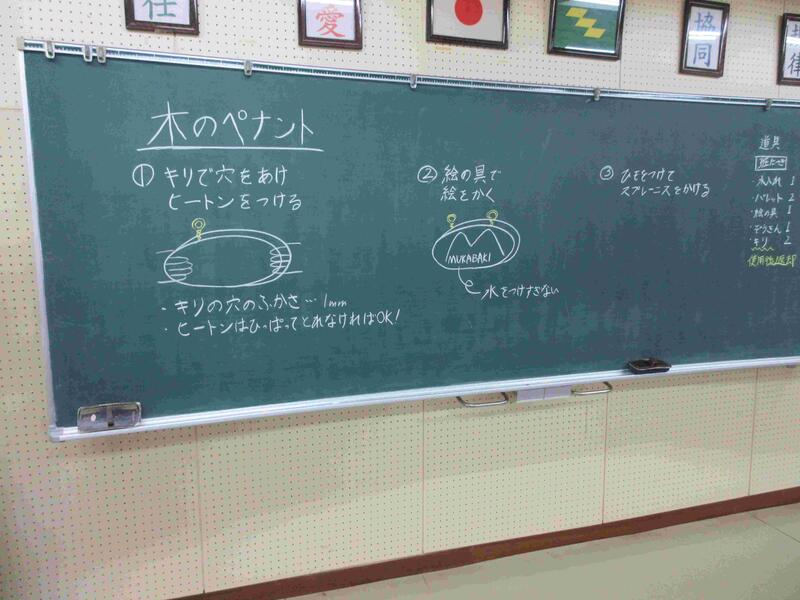 愛
協同
木のペナント
① キリで穴をあけ
ヒートンをつける
・キリの穴のふかさ…1mm
・ヒートンはひっぱってとれなければOK!
② 絵の具で
絵をかく
MUKABAKI
水をつけすぎない
③ ひもをつけて
スプレーニスをかける
道具
・水入れ 1
・パレット 2
・絵の具 1
・ぞうきん 1
・キリ 2
使用後返却